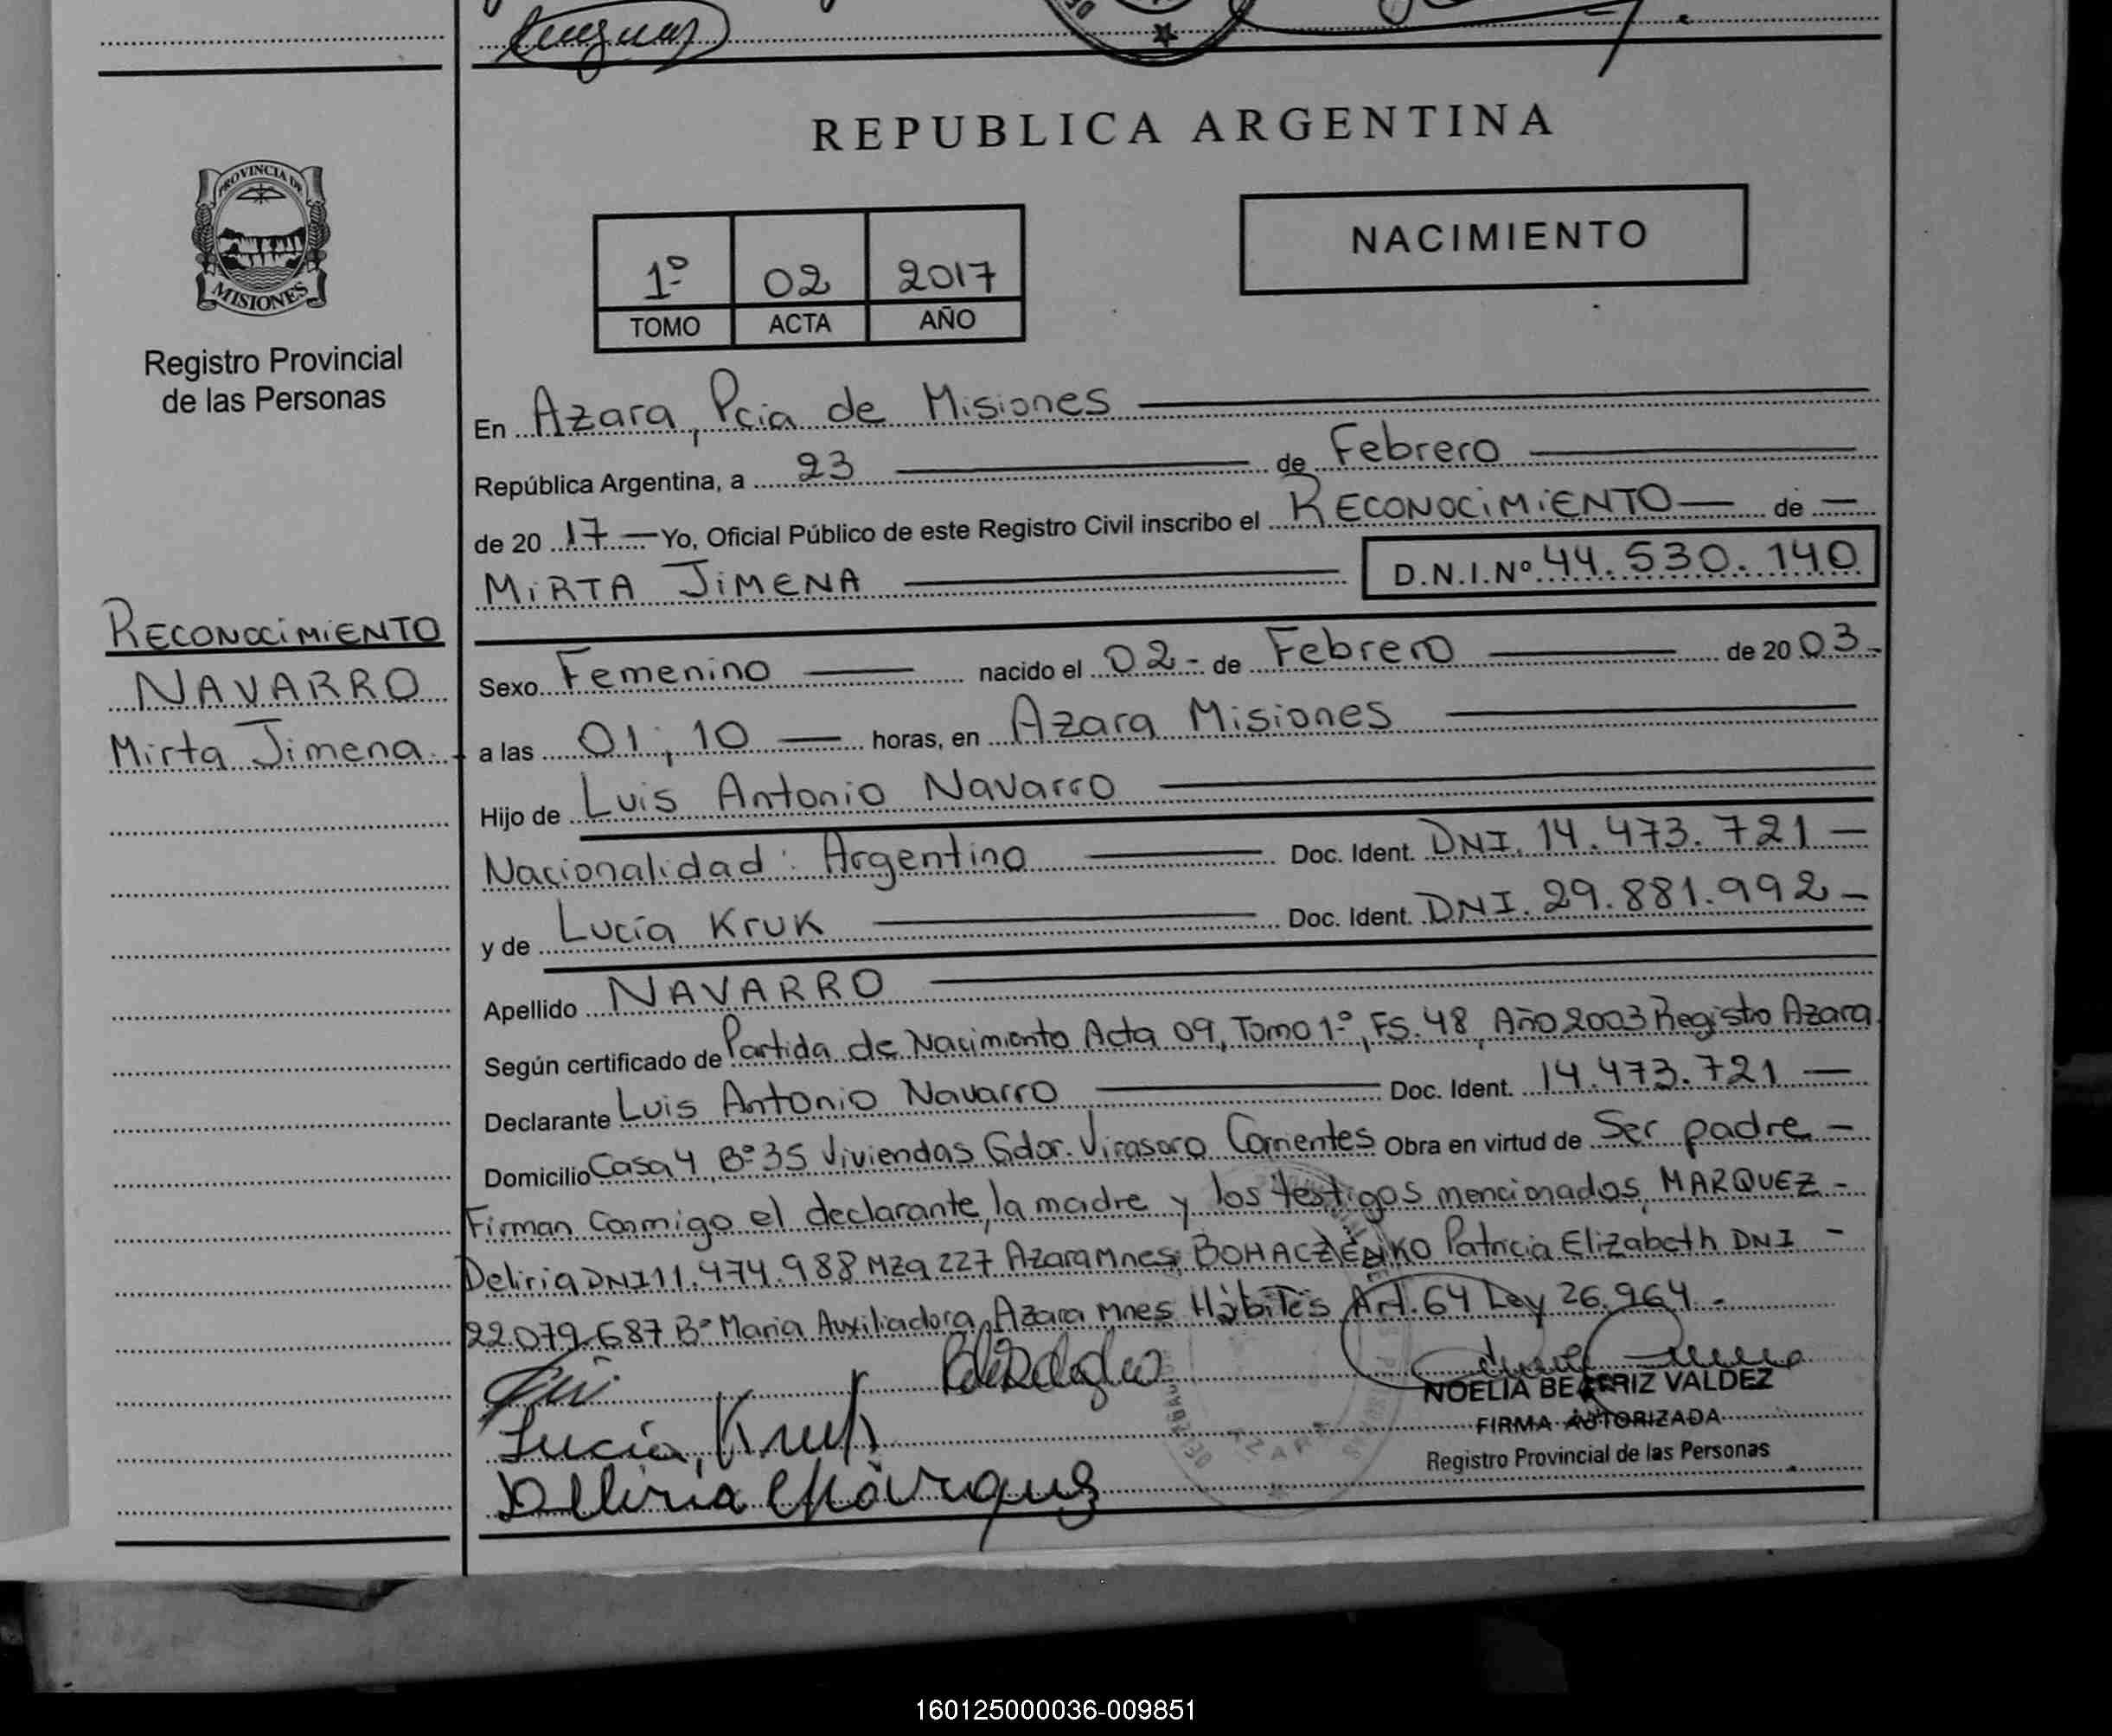 REPUBLICA ARGENTINA
PROVINCIA DE
MISIONES
Registro Provincial
de las Personas
1º 02 2017
TOMO ACTA AÑO
NACIMIENTO
En Azara, Pcia de Misiones
República Argentina, a 23 de Febrero
de 20 17 Yo, Oficial Público de este Registro Civil inscribo el RECONOCIMIENTO de
MIRTA JIMENA D.N.I.Nº 44.530.140
RECONOCIMIENTO
NAVARRO
Mirta Jimena.
Sexo Femenino nacido el 02 - de Febrero de 20 03 -
a las 01;10 horas, en Azara Misiones
Hijo de Luis Antonio Navarro
Nacionalidad: Argentino Doc. Ident. DNI. 14.473.721 —
y de Lucía Kruk Doc. Ident. DNI. 29.881.992 —
Apellido NAVARRO
Según certificado de Partida de Nacimiento Acta 09, Tomo 1º, FS. 48, Año 2003 Registro Azara.
Declarante Luis Antonio Navarro Doc. Ident. 14.473.721 —
Domicilio Casa 4, Bº 35 Viviendas Gdor. Virasoro Corrientes Obra en virtud de Ser padre —
Firman Conmigo el declarante, la madre y los testigos mencionados, MARQUEZ -
Deliria DNI 11.474.988 Mza 227 Azara Mnes; BOHACZENKO Patricia Elizabeth DNI -
22.079.687 Bº Maria Auxiliadora Azara Mnes Hábiles Art. 64 Ley 26.964 -
Lucía Kruk
Deliria Márquez
NOELIA BEATRIZ VALDEZ
FIRMA AUTORIZADA
Registro Provincial de las Personas
AZARA
160125000036-009851